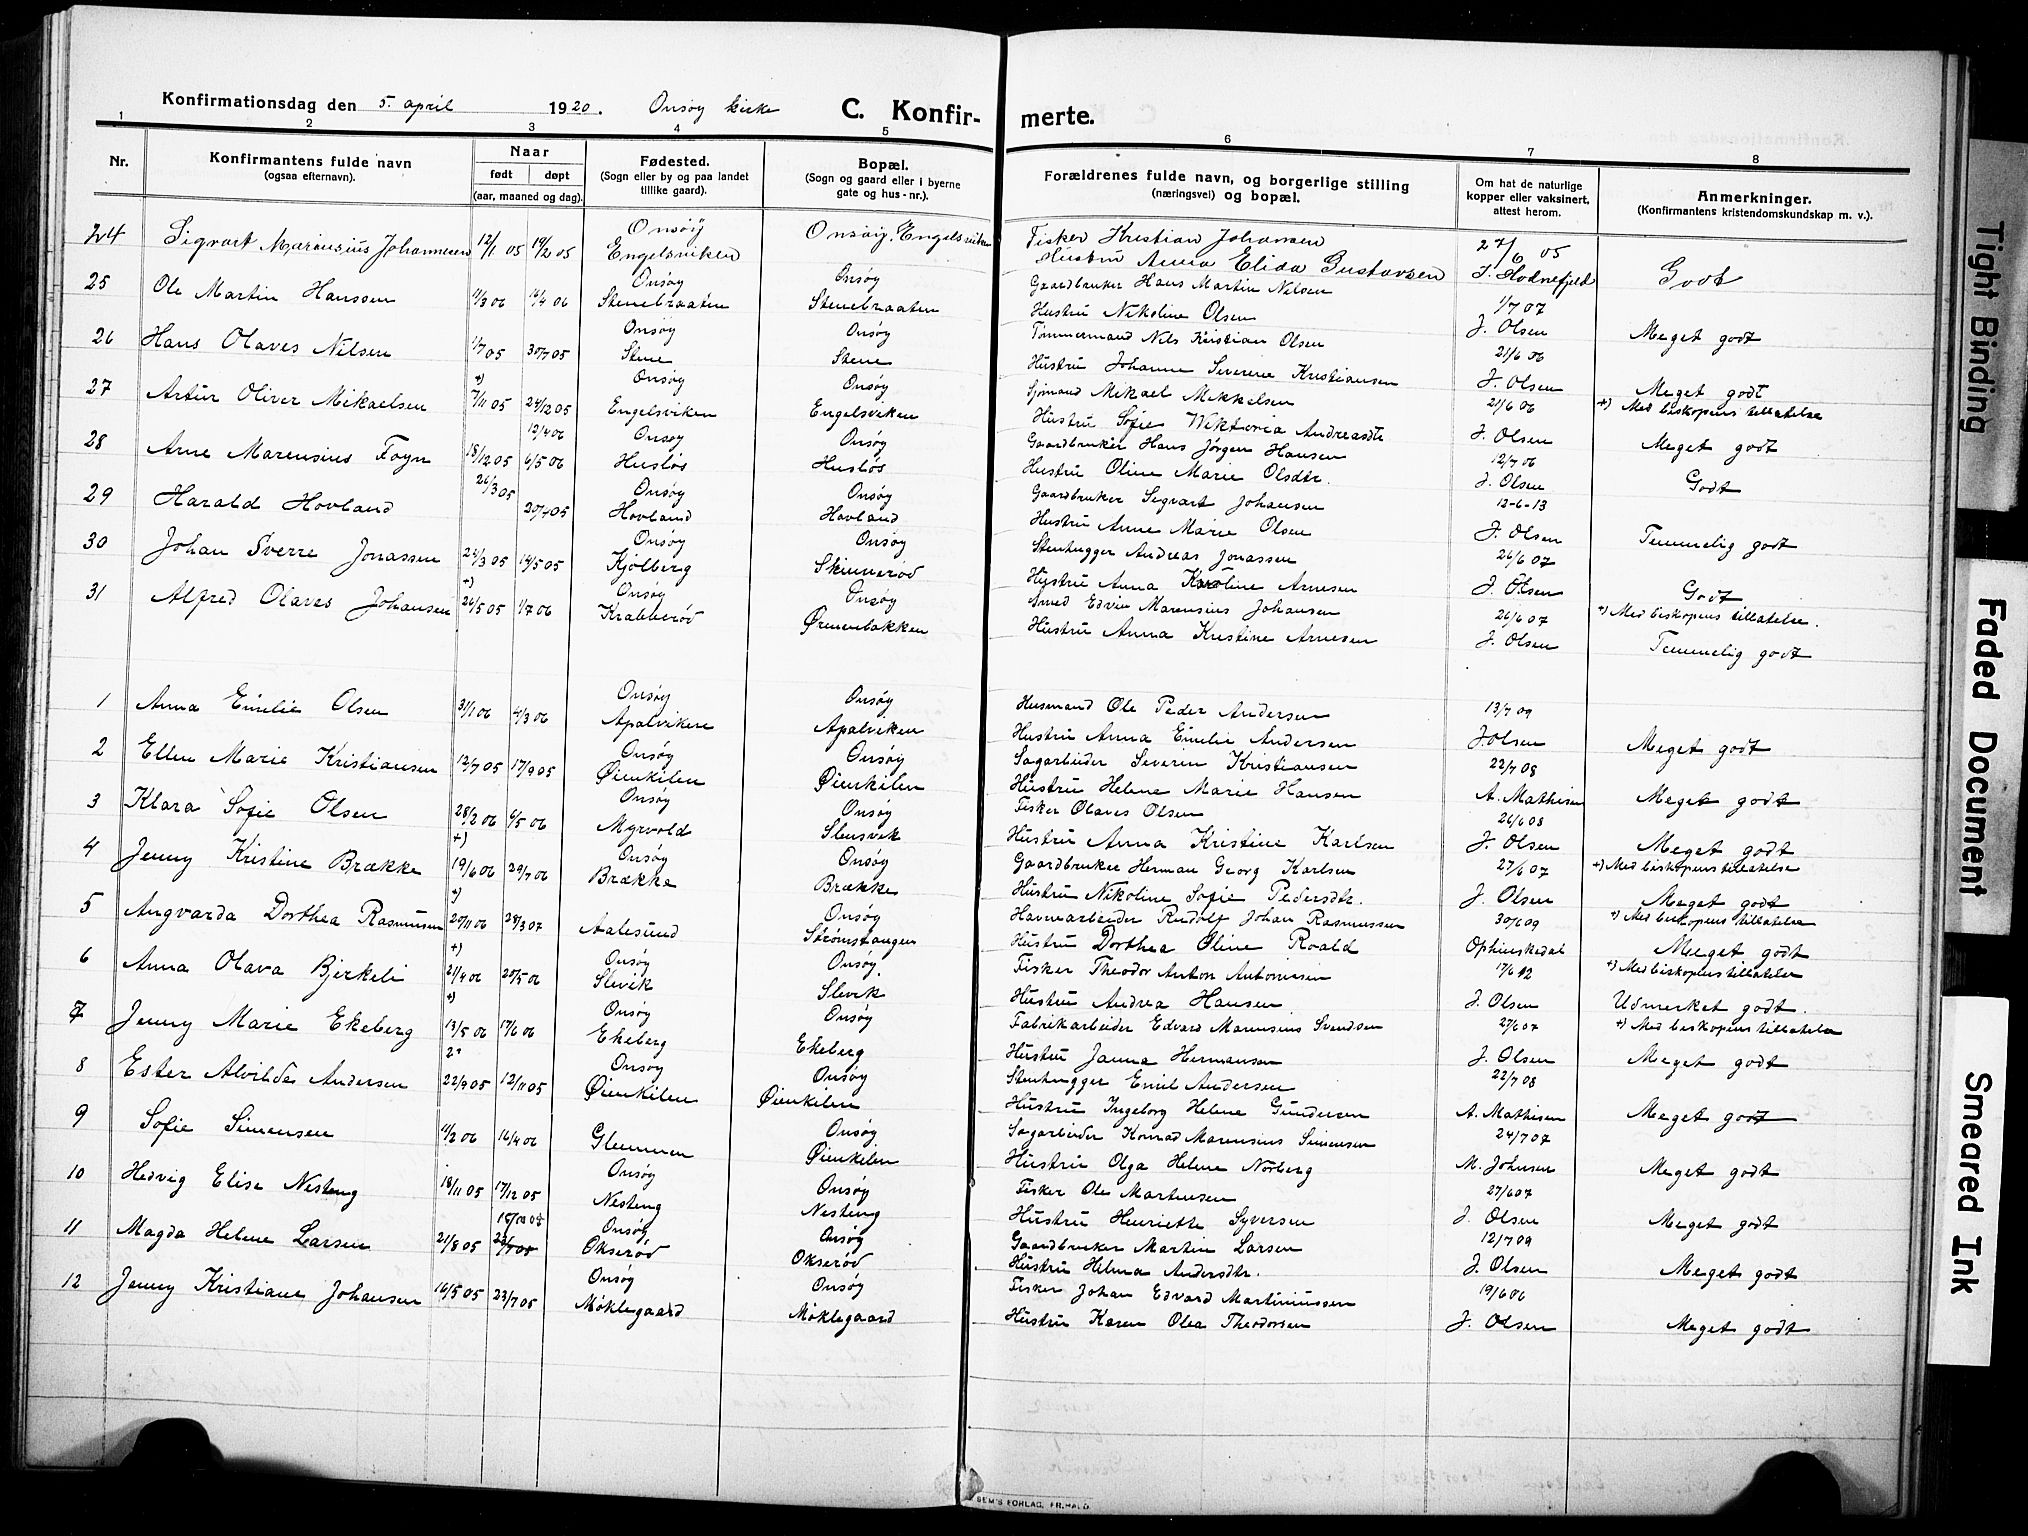 Konfirmationsdag den 5. april 1920. Onsøy kirke C. Konfir-merte.
1 2 3 4 5 6 7 8
Nr. Konfirmantens fulde navn (ogsaa efternavn). Naar født døpt (aar, maaned og dag). Fødested. (Sogn eller by og paa landet tillike gaard). Bopæl. (Sogn og gaard eller i byerne gate og hus-nr.). Forældrenes fulde navn, og borgerlige stilling (næringsvei) og bopæl. Om hat de naturlige kopper eller vaksinert, attest herom. Anmerkninger. (Konfirmantens kristendomskundskap m. v.).
24 Sigvart Marensius Johannesen 12/1 05 19/2 05 Onsøy Engelsviken Onsøy, Engelsviken Fisker Kristian Johansen 27/6 05
Hustru Anna Elida Gustavsen J. Hodnefjeld Godt
25 Ole Martin Hanssen 11/3 06 16/4 06 Onsøy Stenebraaten Onsøy Stenebraaten Gaardbruker Hans Martin Nilsen 1/7 07
Hustru Nikoline Olsen J. Olsen Meget godt
26 Hans Olaves Nilsen 1/7 05 30/7 05 Onsøy Stene Onsøy Stene Tømmermand Nils Kristian Olsen 21/6 06
Hustru Johanne Severine Kristiansen J. Olsen Meget godt
27 Artur Oliver Mikaelsen +) 7/11 05 24/12 05 Onsøy Engelsviken Onsøy Engelsviken Sjømand Mikael Mikkelsen 21/6 06 +) Med biskopens tillatelse
Hustru Sofie Viktoria Andreasdtr J. Olsen Meget godt
28 Arne Marensius Foyn 18/12 05 12/4 06 6/5 06 Onsøy Husløs Onsøy Husløs Gaardbruker Hans Jørgen Hansen 12/7 06
Hustru Oline Marie Olsdtr. J. Olsen Godt
29 Harald Hovland 26/3 05 20/4 05 Onsøy Hovland Onsøy Hovland Gaardbruker Sigvart Johansen 12-6-13
Hustru Anne Marie Olsen J. Olsen Temmelig godt
30 Johan Sverre Jonassen 24/3 05 14/5 05 Onsøy Kjølberg Onsøy Skinnerød Stenhugger Andreas Jonassen 26/6 07
Hustru Anna Karoline Arnesen J. Olsen Godt
31 Alfred Olaves Johansen +) 26/5 05 1/7 06 Onsøy Krabberød Onsøy Ørmenbakken Smed Edvin Marensius Johansen 26/6 07 +) Med biskopens tillatelse.
Hustru Anna Kristine Arnesen J. Olsen Temmelig godt
1 Anna Emilie Olsen 31/1 06 4/3 06 Onsøy Apalviken Onsøy Apalviken Husmand Ole Peder Andersen 13/7 09
Hustru Anna Emilie Andersen J. Olsen Meget godt
2 Ellen Marie Kristiansen 12/7 05 17/9 05 Onsøy Øienkilen Onsøy Øienkilen Sagarbeider Severin Kristiansen 22/7 08
Hustru Helene Marie Hansen A. Mathisen Meget godt
3 Klara Sofie Olsen 28/2 06 6/5 06 Onsøy Myrvold Onsøy Slevsvik Fisker Olaves Olsen 26/6 08
Hustru Anna Kristine Karlsen J. Olsen Meget godt
4 Jenny Kristine Brække +) 19/6 06 29/7 06 Onsøy Brække Onsøy Brække Gaardbruker Herman Georg Karlsen 27/6 07 +) Med biskopens tillatelse
Hustru Nikoline Sofie Pedersdtr. J. Olsen Meget godt
5 Angvarda Dorthea Rasmussen +) 20/11 06 28/3 07 Aalesund Onsøy Strømstangen Havnearbeider Rudolf Johan Rasmussen 30/6 09 +) Med biskopens tillatelse
Hustru Dorthea Oline Roald Meget godt
6 Anna Olava Bjerkeli +) 21/4 06 20/5 06 Onsøy Slevik Onsøy. Slevik Fisker Theodor Anton Antonisen 17/6 12 +) Med biskopens tillatelse
Hustru Andrea Hansen J. Olsen Udmerket godt.
7 Jenny Marie Ekeberg +) 13/5 06 17/6 06 Onsøy Ekeberg Onsøy Ekeberg Fabrikarbeider Edvard Marensius Svendsen 27/6 07 +) Med biskopens tillatelse
Hustru Janna Hermansen J. Olsen Meget godt
8 Ester Alvilde Andersen 22/9 05 12/11 05 Onsøy Øienkilen Onsøy Øienkilen Stenhugger Emil Andersen 22/7 08
Hustru Ingeborg Helene Gundersen A. Mathisen Meget godt
9 Sofie Simensen 11/2 06 16/4 06 Glemmen Onsøy Øienkilen Sagarbeider Konrad Marensius Simensen 24/7 07
Hustru Olga Helene Norberg M. Johnsen Meget godt
10 Hedvig Elise Nesteng 18/11 05 17/12 05 Onsøy Nesteng Onsøy Nesteng Fisker Ole Martensen 27/6 07
Hustru Henriette Syversen J. Olsen Meget godt
11 Magda Helene Larsen 21/8 05 Onsøy Okserød Onsøy Okserød Gaardbruker Martin Larsen 12/7 09
Hustru Helma Andersdtr. J. Olsen Meget godt
12 Jenny Kristiane Johansen 16/5 05 23/7 05 Onsøy Møklegaard Onsøy Møklegaard Fisker Johan Edvard Martiniussen 19/6 06
Hustru Karen Olea Theodorsen J. Olsen Meget godt
SEM'S FORLAG, FR.HALD.
Tight Binding
Faded Document
Smeared Ink